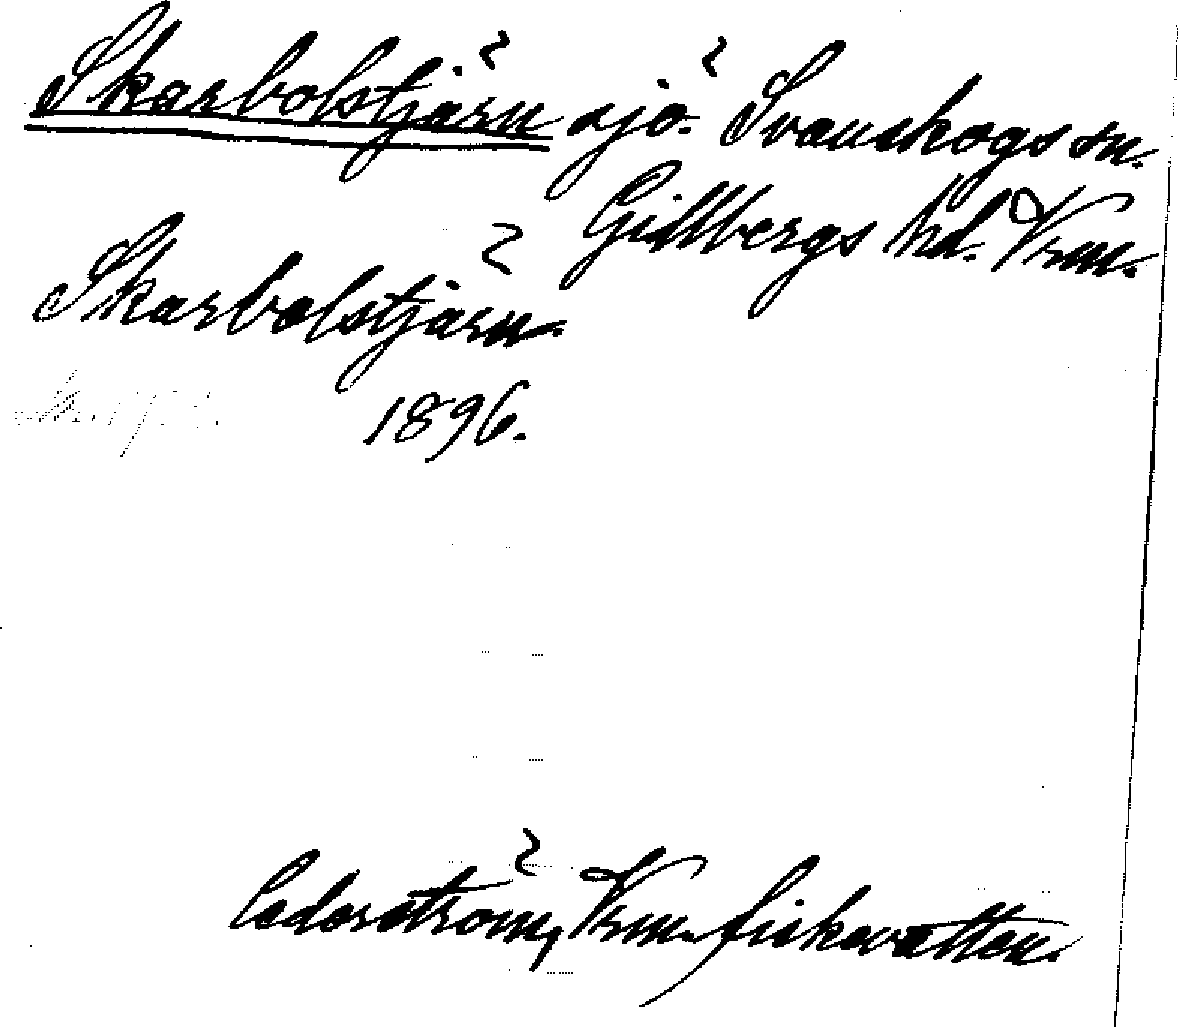 Skarbolstjärn sjö. Svanskogs sn.
Gillbergs hd. Vrm.
Skarbolstjärn.
1896.
Cederström, Vrm. fiskevatten.